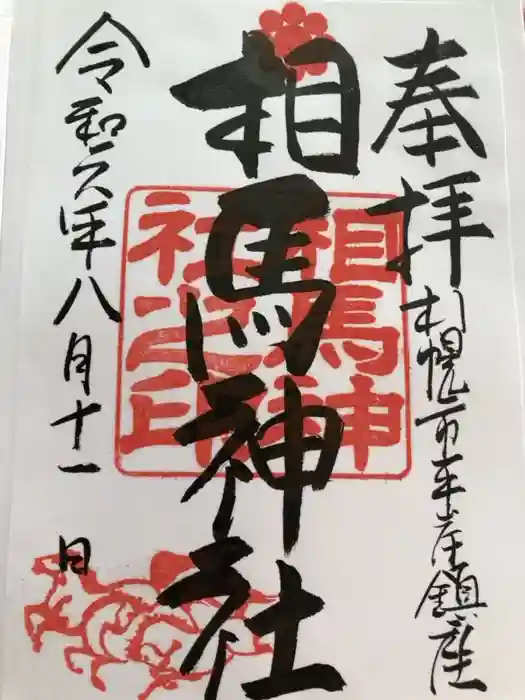 奉拝
札幌市平岸鎮座
相馬神社
相馬神
社之印
令和元年八月十一日